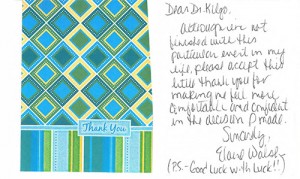 Thank You
Dear Dr. Kilgo,
Although I'm not
finished with this
particular event in my
life, please accept this
little thank you for
making me feel more
comfortable and confident
in the decision I made.
Sincerely,
Elaine
(P.S.- Good luck with luck!!)